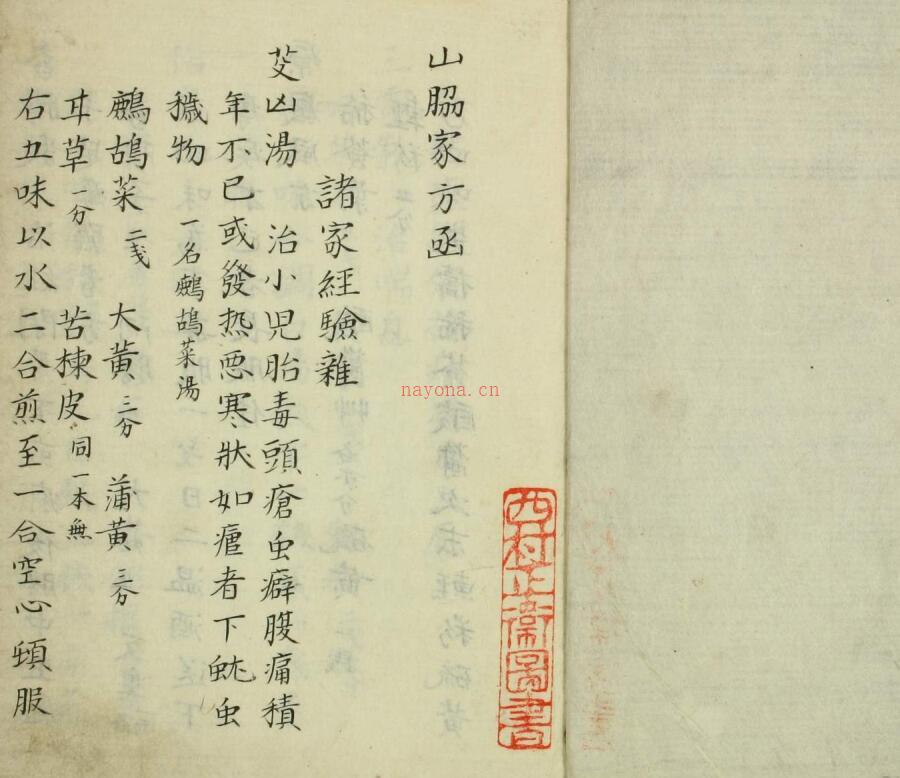 山脇家方函
諸家経驗雜
芟凶湯 治小児胎毒頭瘡虫癖腹痛積
年不已或發热悪寒状如瘧者下蚘虫
穢物 一名鷓鴣菜湯
鷓鴣菜 二戔 大黄 三分 蒲黄 三分
草 一分 苦楝皮 同一本無
右五味以水二合煎至一合空心頓服
西村正衛圖書
nayona.cn